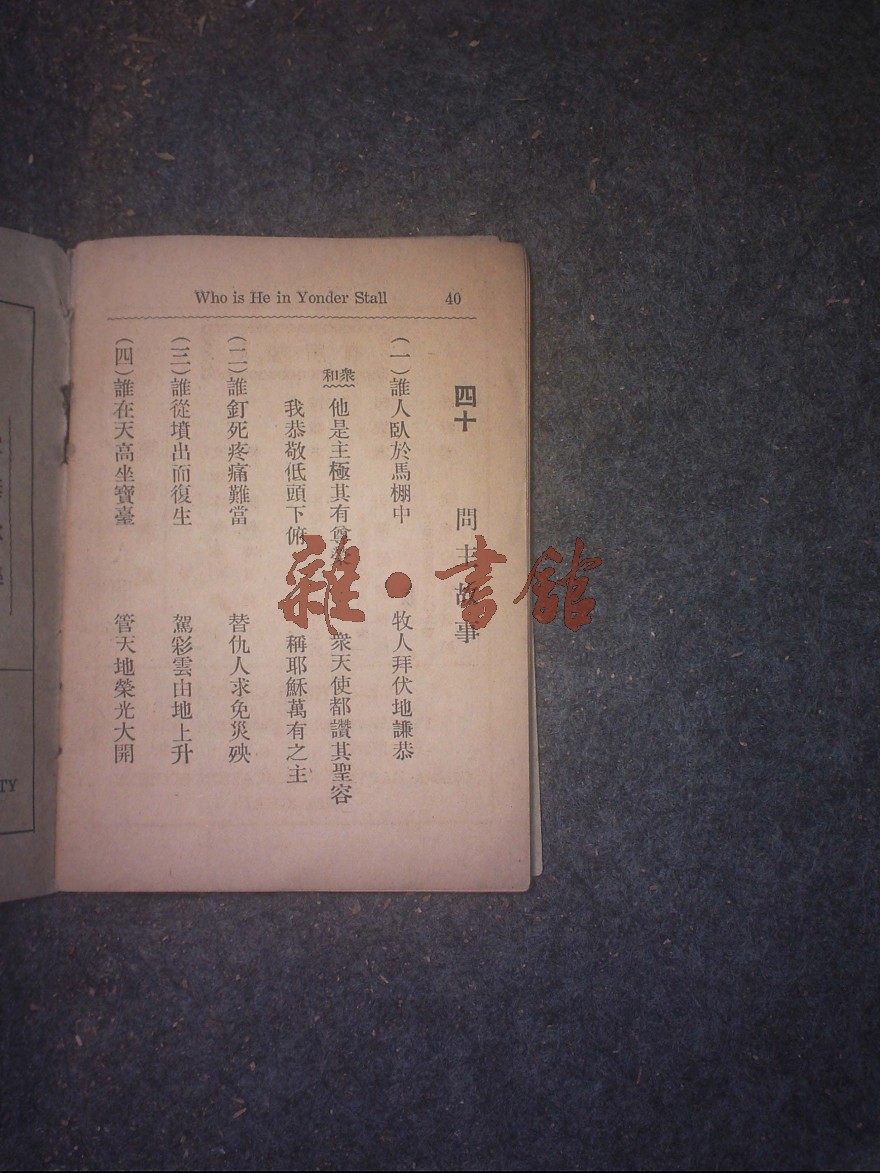 Who is He in Yonder Stall 40
四十 問主故事
(一)誰人臥於馬棚中 牧人拜伏地謙恭
和衆 他是主極其有尊榮 衆天使都讚其聖容
我恭敬低頭下俯 稱耶穌萬有之主
(二)誰釘死疼痛難當 替仇人求免災殃
(三)誰從墳出而復生 駕彩雲由地上升
(四)誰在天高坐寶臺 管天地榮光大開
雜·書館
TY